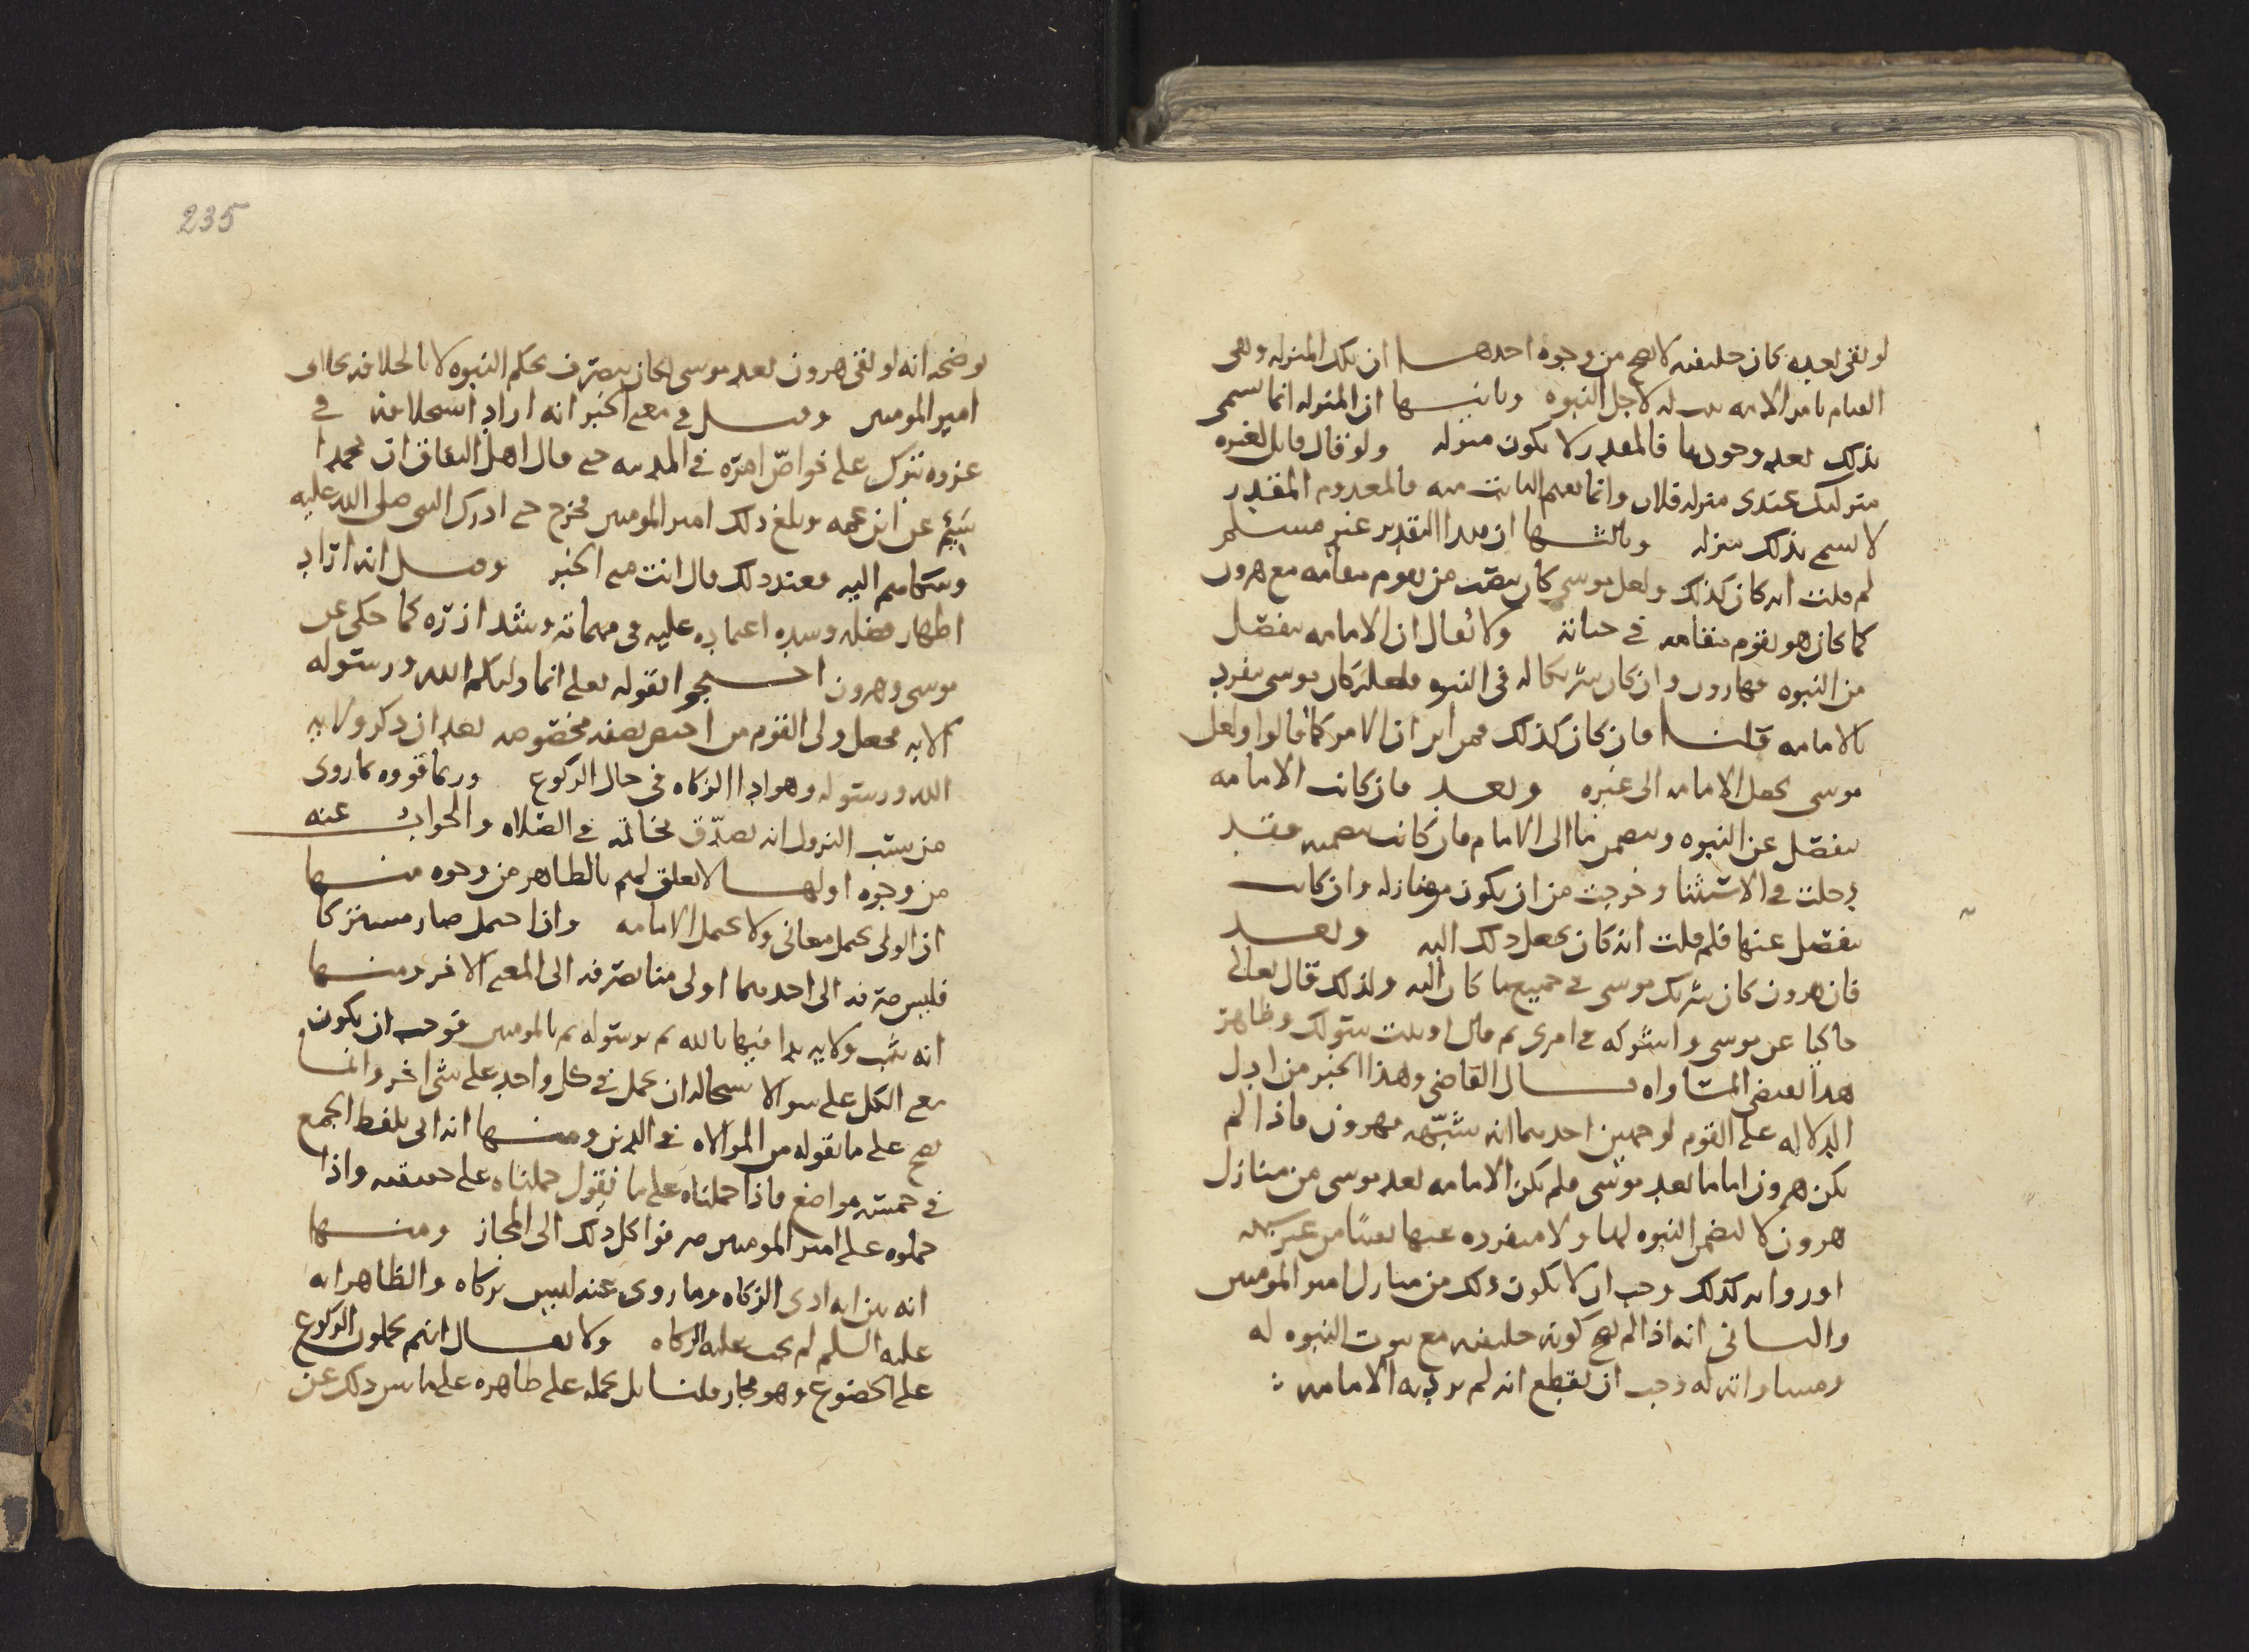 لو بقى بعده كان خليفته لا يصح من وجوه احدها ان تلك المنزله وهى
القيام بامر الامه له لاجل النبوه وثانيها ان المنزله انما تسمى
بذلك بعد وجودها فالمقدر لا يكون منزله ولو قال قايل لغيره
منزلتك عندى منزله فلان وانما يفهم الثابت منه فالمعدوم المقدر
لا يسمى بذلك منزله وثالثها ان هذا التقدير غير مسلم
لم قلت انه كان كذلك ولعل موسى كان ينصب من يقوم مقامه مع هرون
كما كان هو يقوم مقامه فى حياته ولا يقال ان الامامه تنفصل
من النبوه فهارون وان كان شريكا له فى النبوه فلعله كان موسى يفرد
بالامامه قلنا فان كان كذلك فمن اين ان الامر كما قالوا ولعل
موسى يجعل الامامه الى غيره وبعد فان كانت الامامه
تنفصل عن النبوه الى الامام فان كانت فقد
دخلت فى الاستثنا وخرجت من ان يكون منازله وان كانت
تنفصل عنها فلم قلت انه كان يجعل ذلك اليه وبعد
فان هرون كان شريك موسى فى جميع ما كان اليه ولذلك قال تعالى
حاكيا عن موسى واشركه فى امرى ثم قال اوتيت سؤلك وظاهر
هذا يقتضى المساواه قال القاضى وهذا الخبر من ادل
الدلاله على القوم لوجهين احدهما انه شبهه بهرون فاذا لم
يكن هرون اماما بعد موسى فلم يكن الامامه بعد موسى من منازل
هرون لا لتضمن النبوه لها ولا منفرده عنها
وانه كذلك وجب ان لا يكون ذلك من منازل امير المومنين
والثانى انه اذا لم يصح كونه خليفته مع ثبوت النبوه له
ومساواته له وجب ان يقطع انه لم يرد به الامامه :
235
يوضحه انه لو بقى هرون بعد موسى لكان يتصرف بحكم النبوه لا بالخلافه بخلاف
امير المومنين وقيل فى معنى الخبر انه اراد استخلافه فى
غزوه تبوك على خواص امره فى المدينه حتى قال اهل النفاق ان محمدا
سئم عن ابن عمه وبلغ ذلك امير المومنين فخرج حتى ادرك النبى صلى الله عليه
وشكاهم اليه فعند ذلك قال انت منى الخبر وقيل انه اراد
اظهار فضله وشده اعتماده عليه فى مهماته وشد ازره كما حكى عن
موسى وهرون احتجوا بقوله تعالى انما وليكم الله ورسوله
الايه فجعل ولى القوم من اختص بصفه مخصوصه بعد ان ذكر ولايه
الله ورسوله وهو اداا الزكاه فى حال الركوع وربما قووه بما روى
من سبب النزول انه تصدق بخاتمه فى الصلاه والجواب عنه
من وجوه اولها لا تعلق لهم بالظاهر من وجوه منها
ان الولى يحتمل معانى ولا يحتمل الامامه واذا احتمل صار مشتركا
فليس صرفه الى احدهما اولى من صرفه الى المعنى الاخر ومنها
انه ثبت ولايه بدا فيها بالله ثم برسوله ثم بالمومنين فوجب ان يكون
معنى الكل على سوا لاستحاله ان يحمل فى كل واحد على شى اخر وانما
يصح على ما نقوله من الموالاه فى الدين ومنها انه اتى بلفظ الجمع
فى خمسه مواضع فاذا حملناه على ما نقول حملناه على حقيقته واذا
حملوه على امير المومنين صرفوا كل ذلك الى المجاز ومنها
انه بين انه ادى الزكاه وما روى عنه ليس بزكاه والظاهر انه
عليه السلم لم يجب عليه الزكاه ولا يقال انهم يحملون الركوع
على الخضوع وهو مجاز قلنا بل نحمله على ظاهره على ما نبين ذلك عن